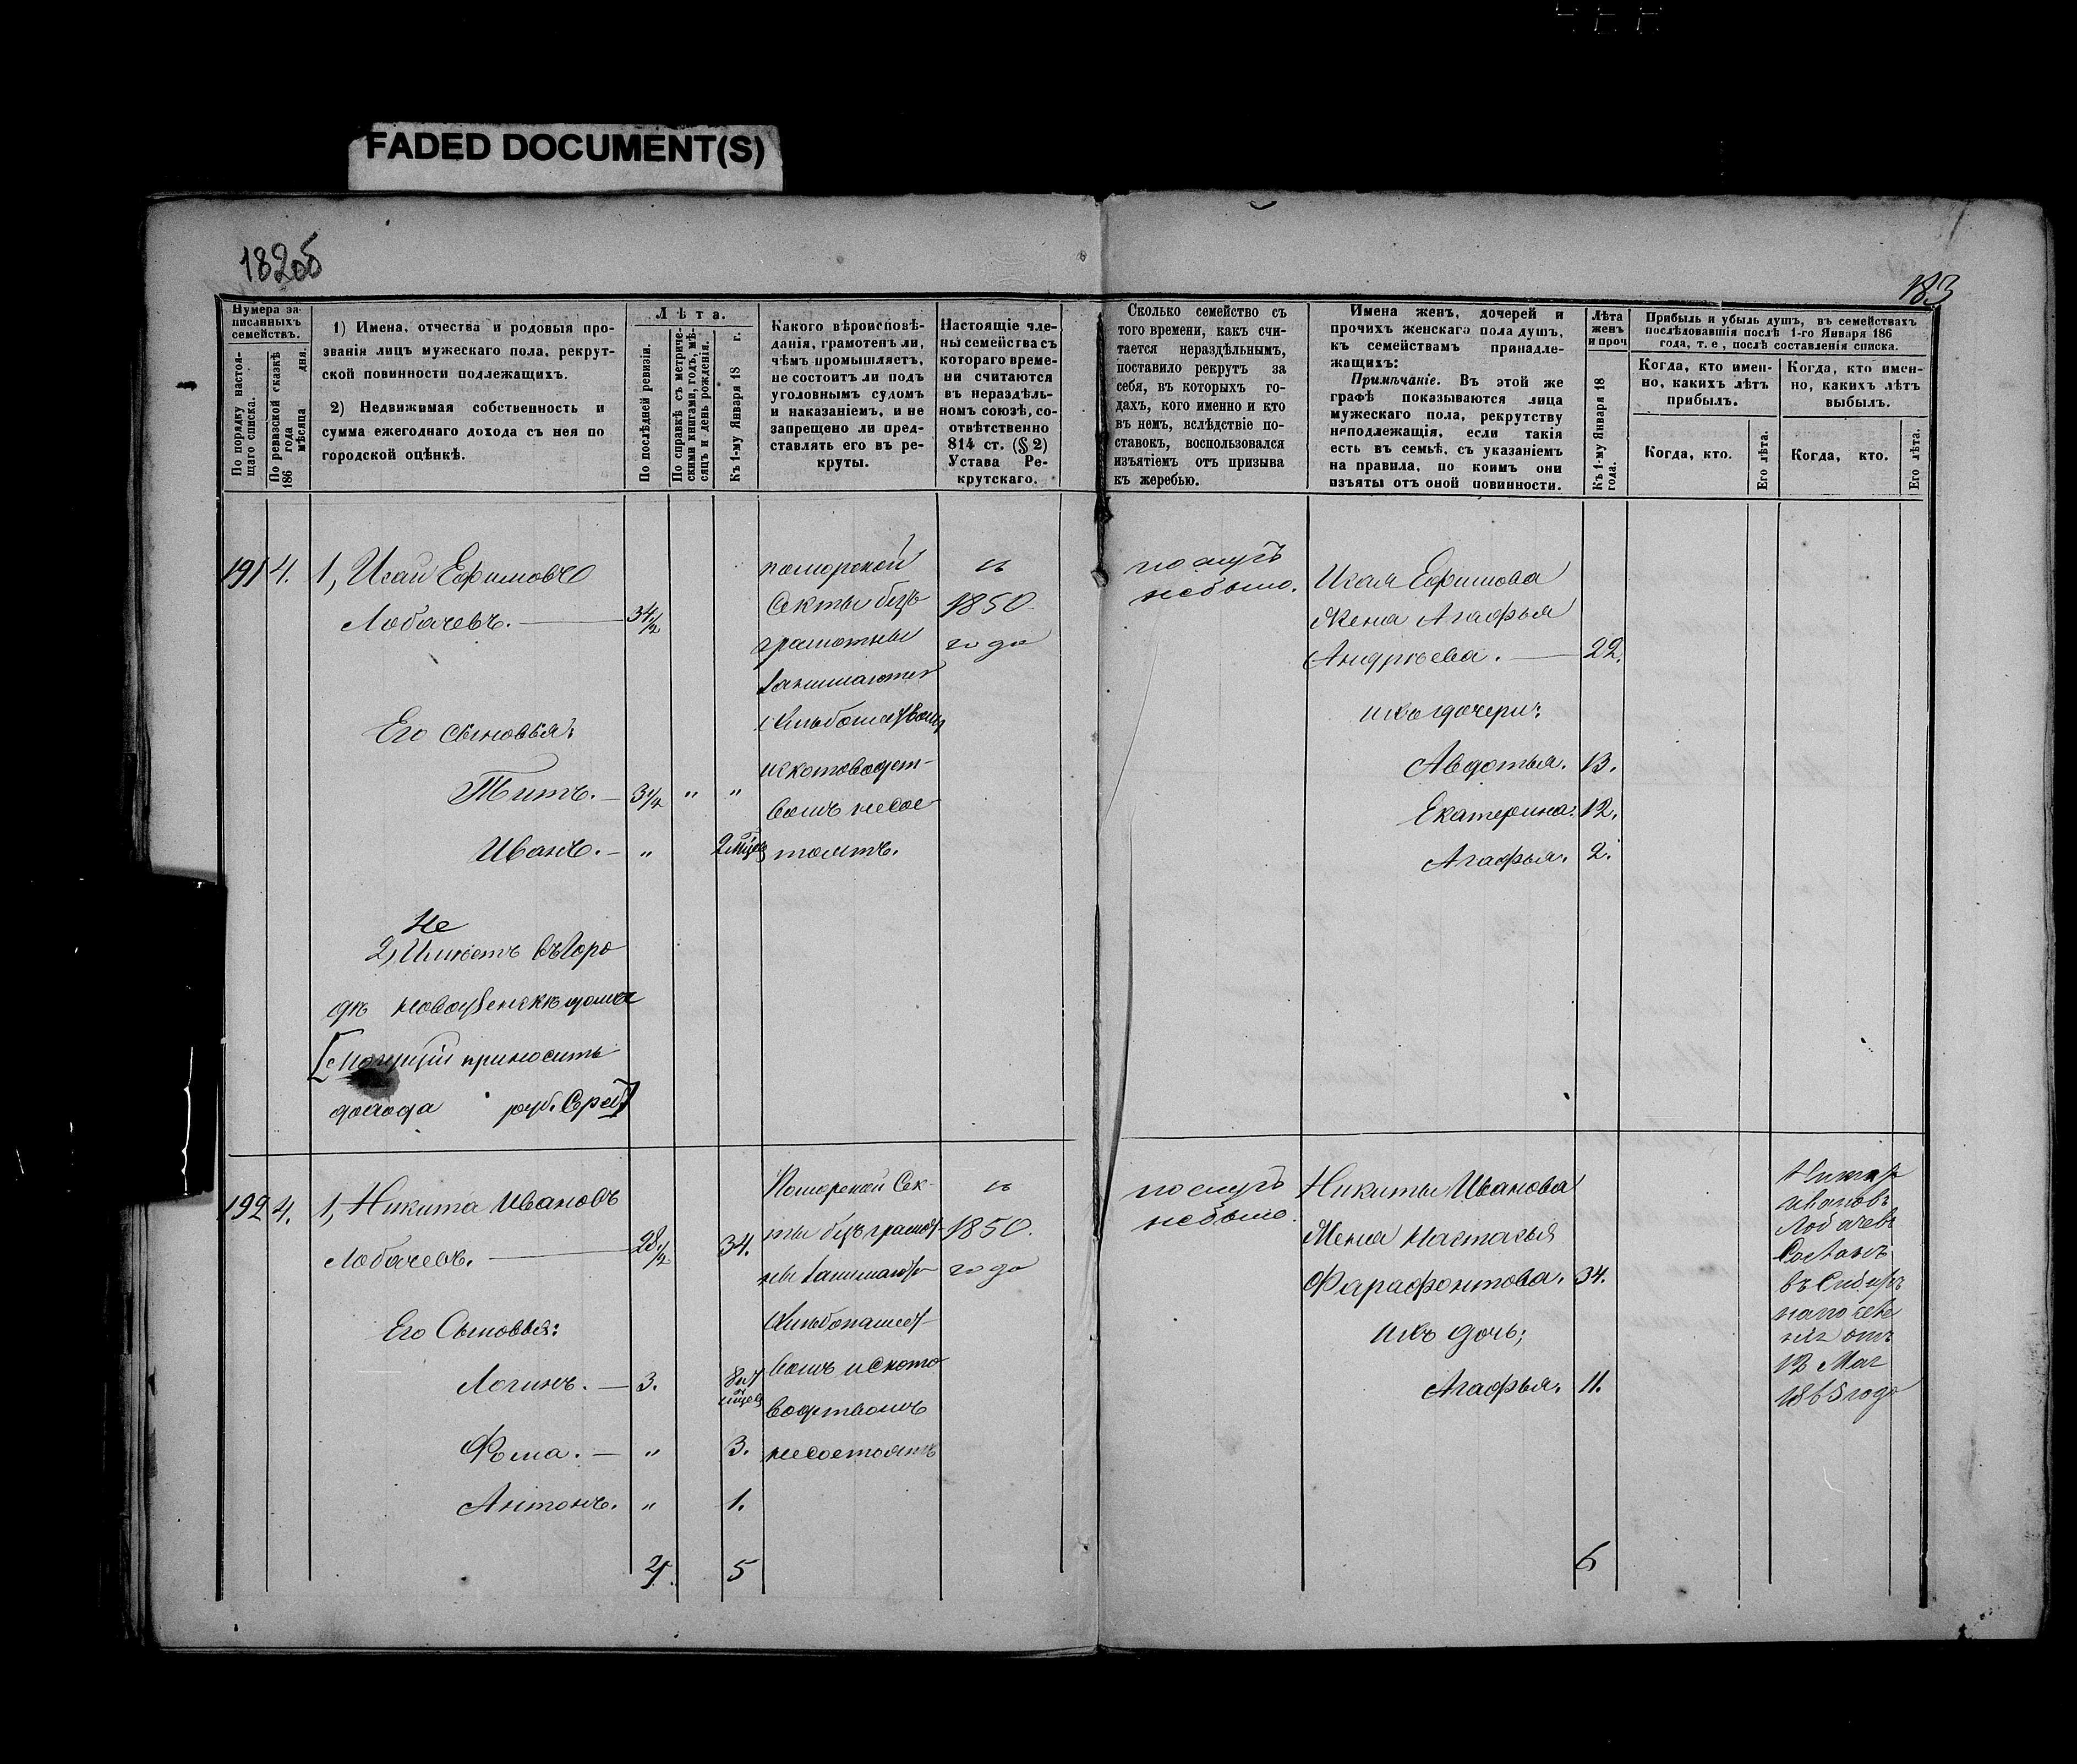 FADED DOCUMENT(S)
182об
183
Нумера за-
писанныхъ
семействъ.
По порядку настоя-
щаго списка.
По ревизской сказкѣ
186 года
мѣсяца дня.
1) Имена, отчества и родовыя про-
званія лицъ мужескаго пола, рекрут-
ской повинности подлежащихъ.
2) Недвижимая собственность и
сумма ежегоднаго дохода съ нея по
городской оцѣнкѣ.
Лѣта.
По послѣдней ревизіи.
По справкѣ съ метриче-
скими книгами, годъ, мѣ-
сяцъ и день рожденія.
Къ 1-му Января 18 г.
Какого вѣроисповѣ-
данія, грамотенъ ли,
чѣмъ промышляетъ,
не состоитъ ли подъ
уголовнымъ судомъ
и наказаніемъ, и не
запрещено ли пред-
ставлять его въ ре-
круты.
Настоящіе чле-
ны семейства съ
котораго време-
ни считаются
въ нераздѣль-
номъ союзѣ, со-
отвѣтственно
814 ст. (§ 2)
Устава Ре-
крутскаго.
Сколько семейство съ
того времени, какъ счи-
тается нераздѣльнымъ,
поставило рекрутъ за
себя, въ которыхъ го-
дахъ, кого именно и кто
въ немъ, вслѣдствіе по-
ставокъ, воспользовался
изъятіемъ отъ призыва
къ жеребью.
Имена женъ, дочерей и
прочихъ женскаго пола душъ,
къ семействамъ принадле-
жащихъ:
Примѣчаніе. Въ этой же
графѣ показываются лица
мужескаго пола, рекрутству
неподлежащія, если такія
есть въ семьѣ, съ указаніемъ
на правила, по коимъ они
изъяты отъ оной повинности.
Лѣта
женъ
и проч
Къ 1-му Января 18
года.
Прибыль и убыль душъ, въ семействахъ
послѣдовавшія послѣ 1-го Января 186
года, т. е, послѣ составленія списка.
Когда, кто имен-
но, какихъ лѣтъ
прибылъ.
Когда, кто имен-
но, какихъ лѣтъ
выбылъ.
Когда, кто.
Его лѣта.
Когда, кто.
Его лѣта.
191 4. 1, Исаи Ефимовъ
Лобачевъ. 34/2
Его сыновья:
Титъ. 3 1/2 " "
Иванъ. " 2 мѣсц
Не
2, Имѣетъ въ Горо
дѣ новоузенскѣ дома
[могущій приносить
дохода руб. Среб]
поморской
Секты безъ
грамотны
занимаются
хлѣбопашествомъ
искотоводст-
вомъ несос
тоитъ.
съ
1850
года
наслугѣ
небыло.
Исая Ефимова
Жена Агафья
Андрѣева. 22.
ихъ дочери:
Авдотья. 13.
Екатерина. 12.
Агафья. 2.
192 4. 1, Никита Ивановъ
Лобачевъ. 28/2 34.
Его Сыновья:
Логинъ. 3. 8 и 7
мѣсц
Фома. " 3.
Антонъ. " 1.
4. 5
Поморской Сек-
ты безъ грамот-
ны занимают-
хлѣбопашест-
вомъ и Ското
водствомъ
несостоитъ
съ
1850.
года
наслугѣ
небыло.
Никиты Иванова
Жена Настасья
Фарафонтова. 34.
ихъ дочь;
Агафья. 11.
6
Никита
ивановъ
Лобачевъ
Сосланъ
въ Сибирь
напоселе
ніе отъ
12 Мая
1865 года